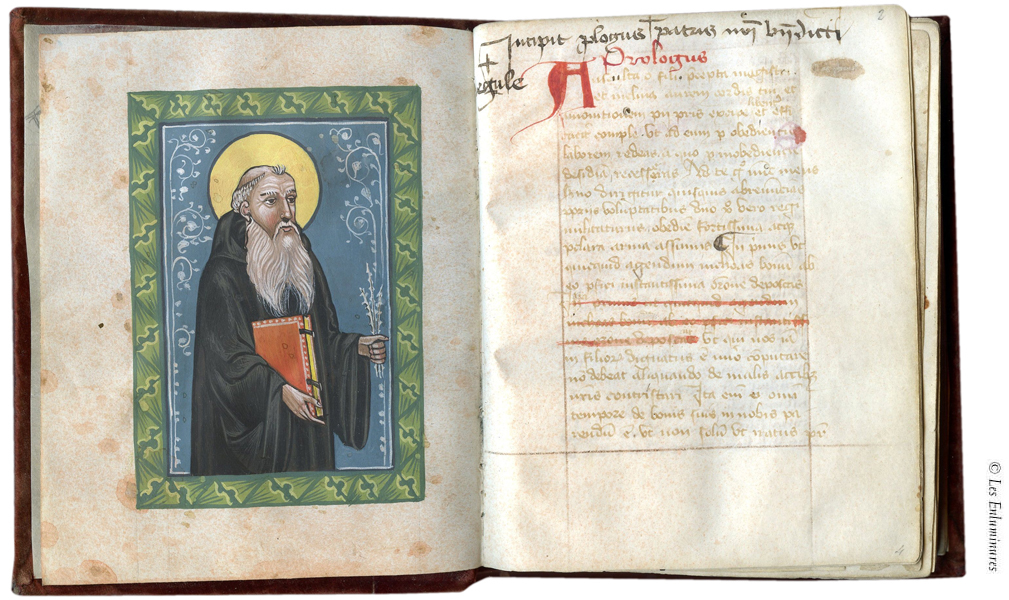 Incipit plogus patris nri bndicti
regule
Prologus
Asculta o fili precepta magistri
et inclina aurem cordis tui et
libenter
admonitionem pii pris excipe et effi
caciter comple. Ut ad eum p obedientie
laborem redeas, a quo p inobedientie
desidia recesseras Ad te g nuc meus
sermo dirigitur quisquis abrenucias
proprijs voluptatibus dno vero regi
militaturus, obedie fortissima atq
pclara arma assumis In pimis ut
quicquid agendum inchoas bonu ab
eo pfici instantissima orone deposcas
Ut qui nos ia
in filioru dignatus e nuo coputare
no debeat aliquando de malis actibz
nris contristari Ita eni ei omi
tempore de bonis suis in nobis pa
rendu e. ut non solu ut iratus pr
2
© Les Enluminures